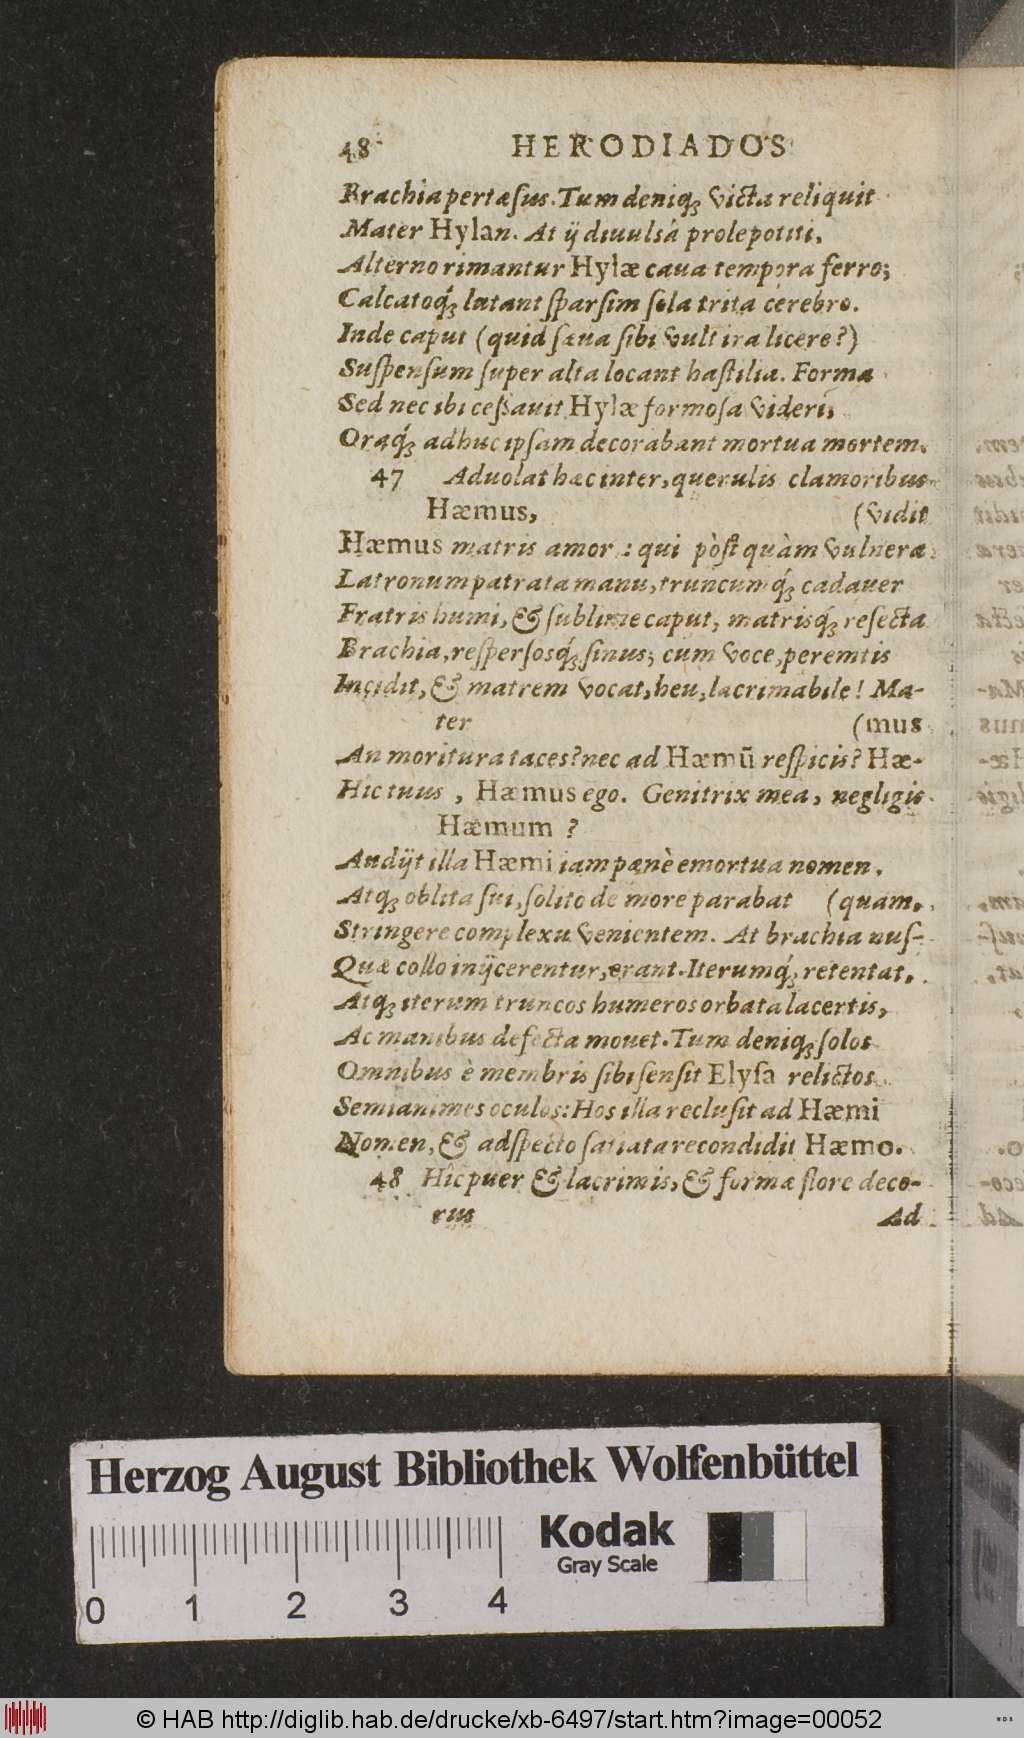 48 HERODIADOS
Brachia pertæsus. Tum deniq; victa reliquit
Mater Hylan. At ij diuulsâ prole potiti,
Alterno rimantur Hylæ caua tempora ferro;
Calcatoq́; lutant sparsim sola trita cerebro.
Inde caput (quid sæua sibi vult ira licere?)
Suspensum super alta locant hastilia. Forma
Sed nec ibi cessauit Hylæ formosa videri;
Oraq́; adhuc ipsam decorabant mortua mortem.
47 Aduolat hæc inter, querulis clamoribus
Hæmus, (vidit
Hæmus matris amor: qui pòst quàm vulnera
Latronum patrata manu, truncumq́; cadauer
Fratris humi, & sublime caput, matrisq́; resecta
Brachia, respersosq́; sinus; cum voce, peremtis
Incidit, & matrem vocat, heu, lacrimabile! Ma-
ter (mus
An moritura taces? nec ad Hæmū respicis? Hæ-
Hic tuus, Hæmus ego. Genitrix mea, negligis
Hæmum ?
Audijt illa Hæmi iam pænè emortua nomen.
Atq; oblita sui, solito de more parabat (quam,
Stringere complexu venientem. At brachia nus-
Quæ collo inijcerentur, erant. Iterumq́; retentat,
Atq; iterum truncos humeros orbata lacertis,
Ac manibus defecta mouet. Tum deniq; solos
Omnibus è membris sibi sensit Elysa relictos
Semianimes oculos: Hos illa reclusit ad Hæmi
Nomen, & adspecto satiata recondidit Hæmo.
48 Hic puer & lacrimis, & formæ flore deco-
rus Ad
Herzog August Bibliothek Wolfenbüttel
Kodak
Gray Scale
0 1 2 3 4
© HAB http://diglib.hab.de/drucke/xb-6497/start.htm?image=00052